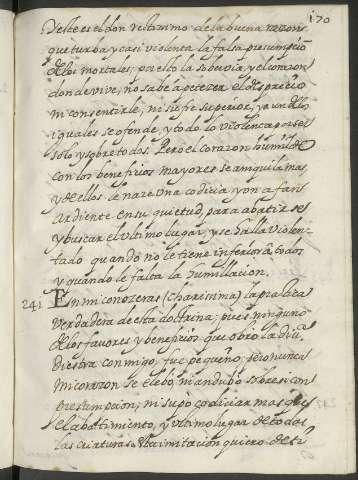 170
y este es el don rectissimo de la buena razon
que turba, y casi violenta la falsa presumpcio
de los mortales; por esto la soberuia, y el corazon
donde viue, no sabe apetecer el desprecio
ni consentirle, ni sufre superior, y aun de los
iguales se ofende, y todo lo violenta por ser
solo y sobre todos. Pero el corazon humilde
con los beneficios mayores se aniquila mas,
y de ellos le naze una codicia y un afan
ardiente en su quietud, para abatirse
y buscar el ultimo lugar, y se halla violen-
tado quando no le tiene inferior â todos
y quando le falta la humillacion.
241 En mi conozeras (charissima) la practica
verdadera de esta doctrina; pues ninguno
de los fauores y beneficios que obro la diui.
diestra conmigo, fue pequeño, pero nunca
mi corazon se elebo ni andubo sobre si con
presumpcion, ni supo codiciar mas que
el abatimiento, y ultimo lugar de todas
las criaturas. Esta imitacion quiero de ti